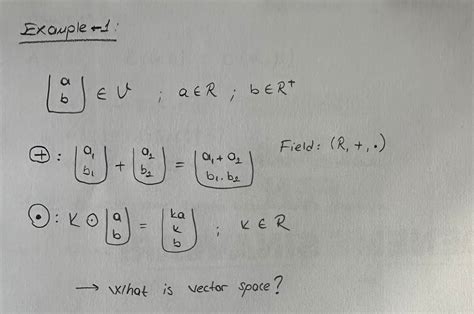 Example-1:
[a b] ∈ V ; a ∈ R ; b ∈ R⁺
⊕: [a₁ b₁] + [a₂ b₂] = [a₁ + a₂ b₁ . b₂] Field: (R, +, •)
⊙: K ⊙ [a b] = [ka k b] ; K ∈ R
→ What is vector space?